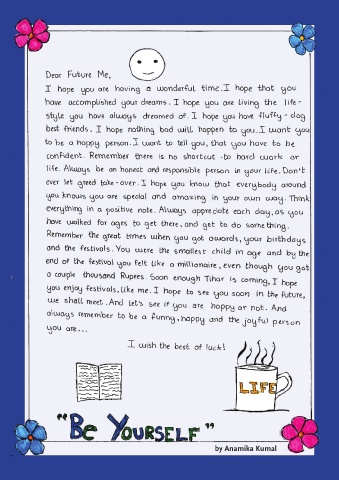 Dear Future Me,
I hope you are having a wonderful time. I hope that you
have accomplished your dreams. I hope you are living the life-
style you have always dreamed of. I hope you have fluffy-dog
best friends. I hope nothing bad will happen to you. I want you
to be a happy person. I want to tell you, that you have to be
confident. Remember there is no shortcut to hard work or
life. Always be an honest and responsible person in your life. Don't
ever let greed take-over. I hope you know that everybody around
you knows you are special and amazing in your own way. Think
everything in a positive note. Always appreciate each day, as you
have walked for ages to get there, and get to do something.
Remember the great times when you got awards, your birthdays
and the festivals. You were the smallest child in age and by the
end of the festival you felt like a millionaire, even though you got
a couple thousand Rupees. Soon enough Tihar is coming, I hope
you enjoy festivals, like me. I hope to see you soon in the future,
we shall meet. And let's see if you are happy or not. And
always remember to be a funny, happy and the joyful person
you are...
I wish the best of luck!
LIFE
"Be Yourself"
by Anamika Kumal